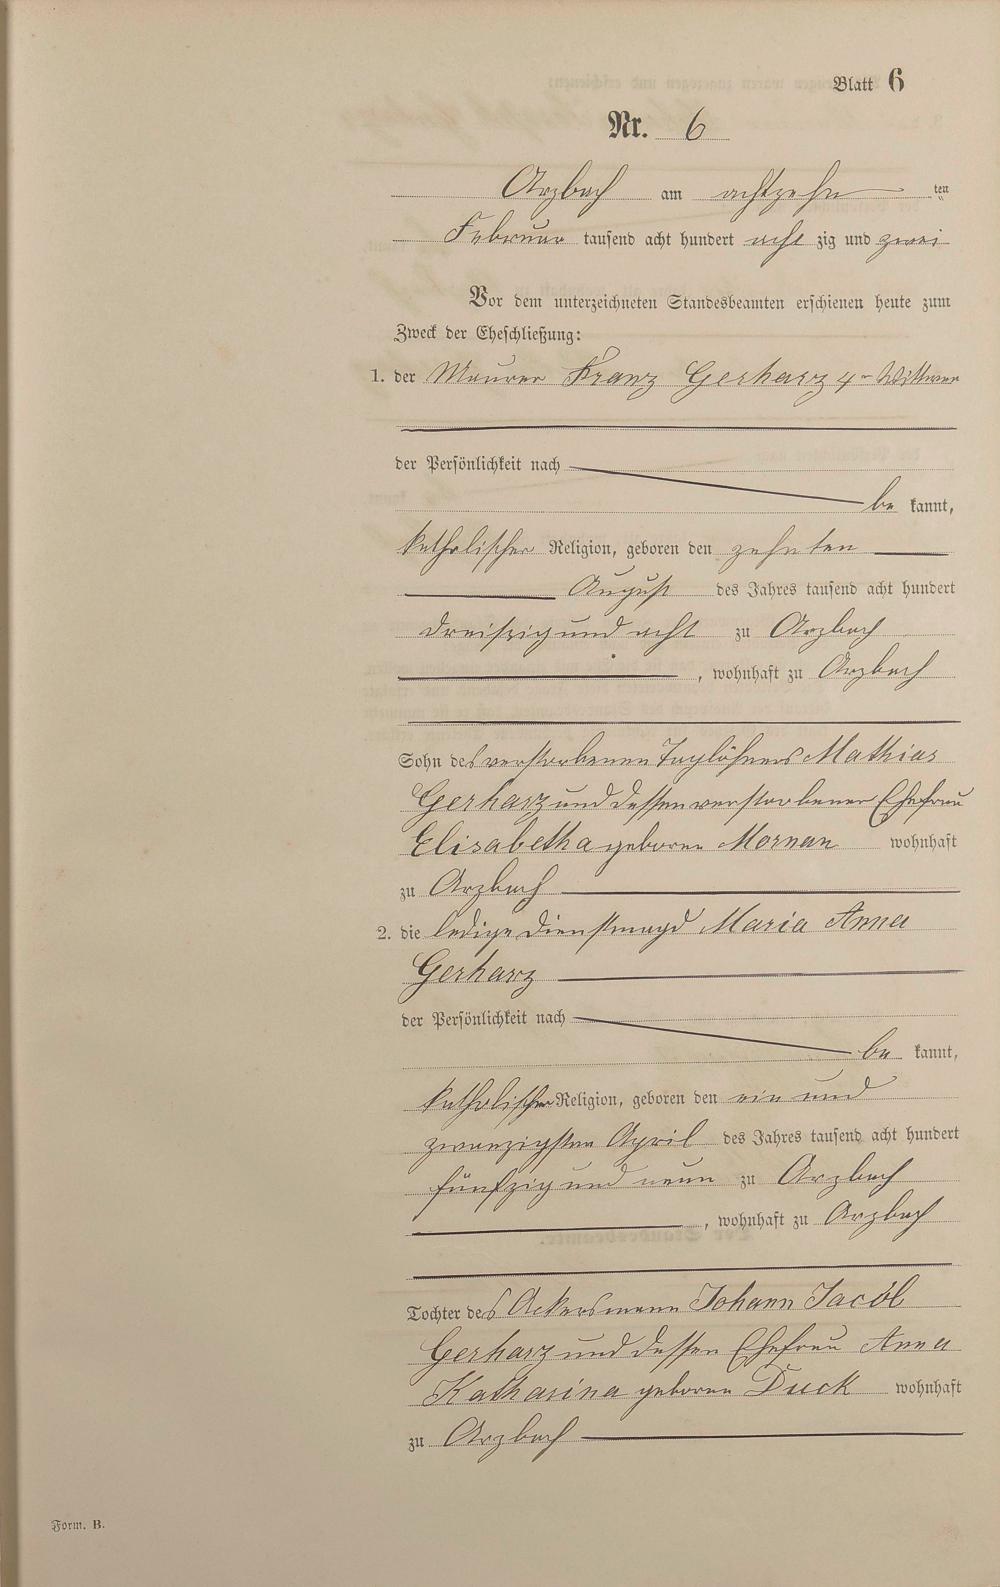 Blatt 6
Nr. 6
Arzbach am achtzehn ten
Februar tausend acht hundert acht zig und zwei
Vor dem unterzeichneten Standesbeamten erschienen heute zum
Zweck der Eheschließung:
1. der Maurer Franz Gerharz 4r Wittwer
der Persönlichkeit nach
be kannt,
katholischer Religion, geboren den zehnten
August des Jahres tausend acht hundert
dreiszig und acht zu Arzbach
, wohnhaft zu Arzbach
Sohn des verstorbenen Taglöhners Mathias
Gerharz und dessen verstorbener Ehefrau
Elisabetha geboren Mornan wohnhaft
zu Arzbach
2. die ledige Dienstmagd Maria Anna
Gerharz
der Persönlichkeit nach
be kannt,
katholischer Religion, geboren den ein und
zwanzigsten April des Jahres tausend acht hundert
fünfzig und neun zu Arzbach
, wohnhaft zu Arzbach
Tochter des Ackersmann Johann Jacob
Gerharz und dessen Ehefrau Anna
Katharina geboren Duck wohnhaft
zu Arzbach
Form. B.